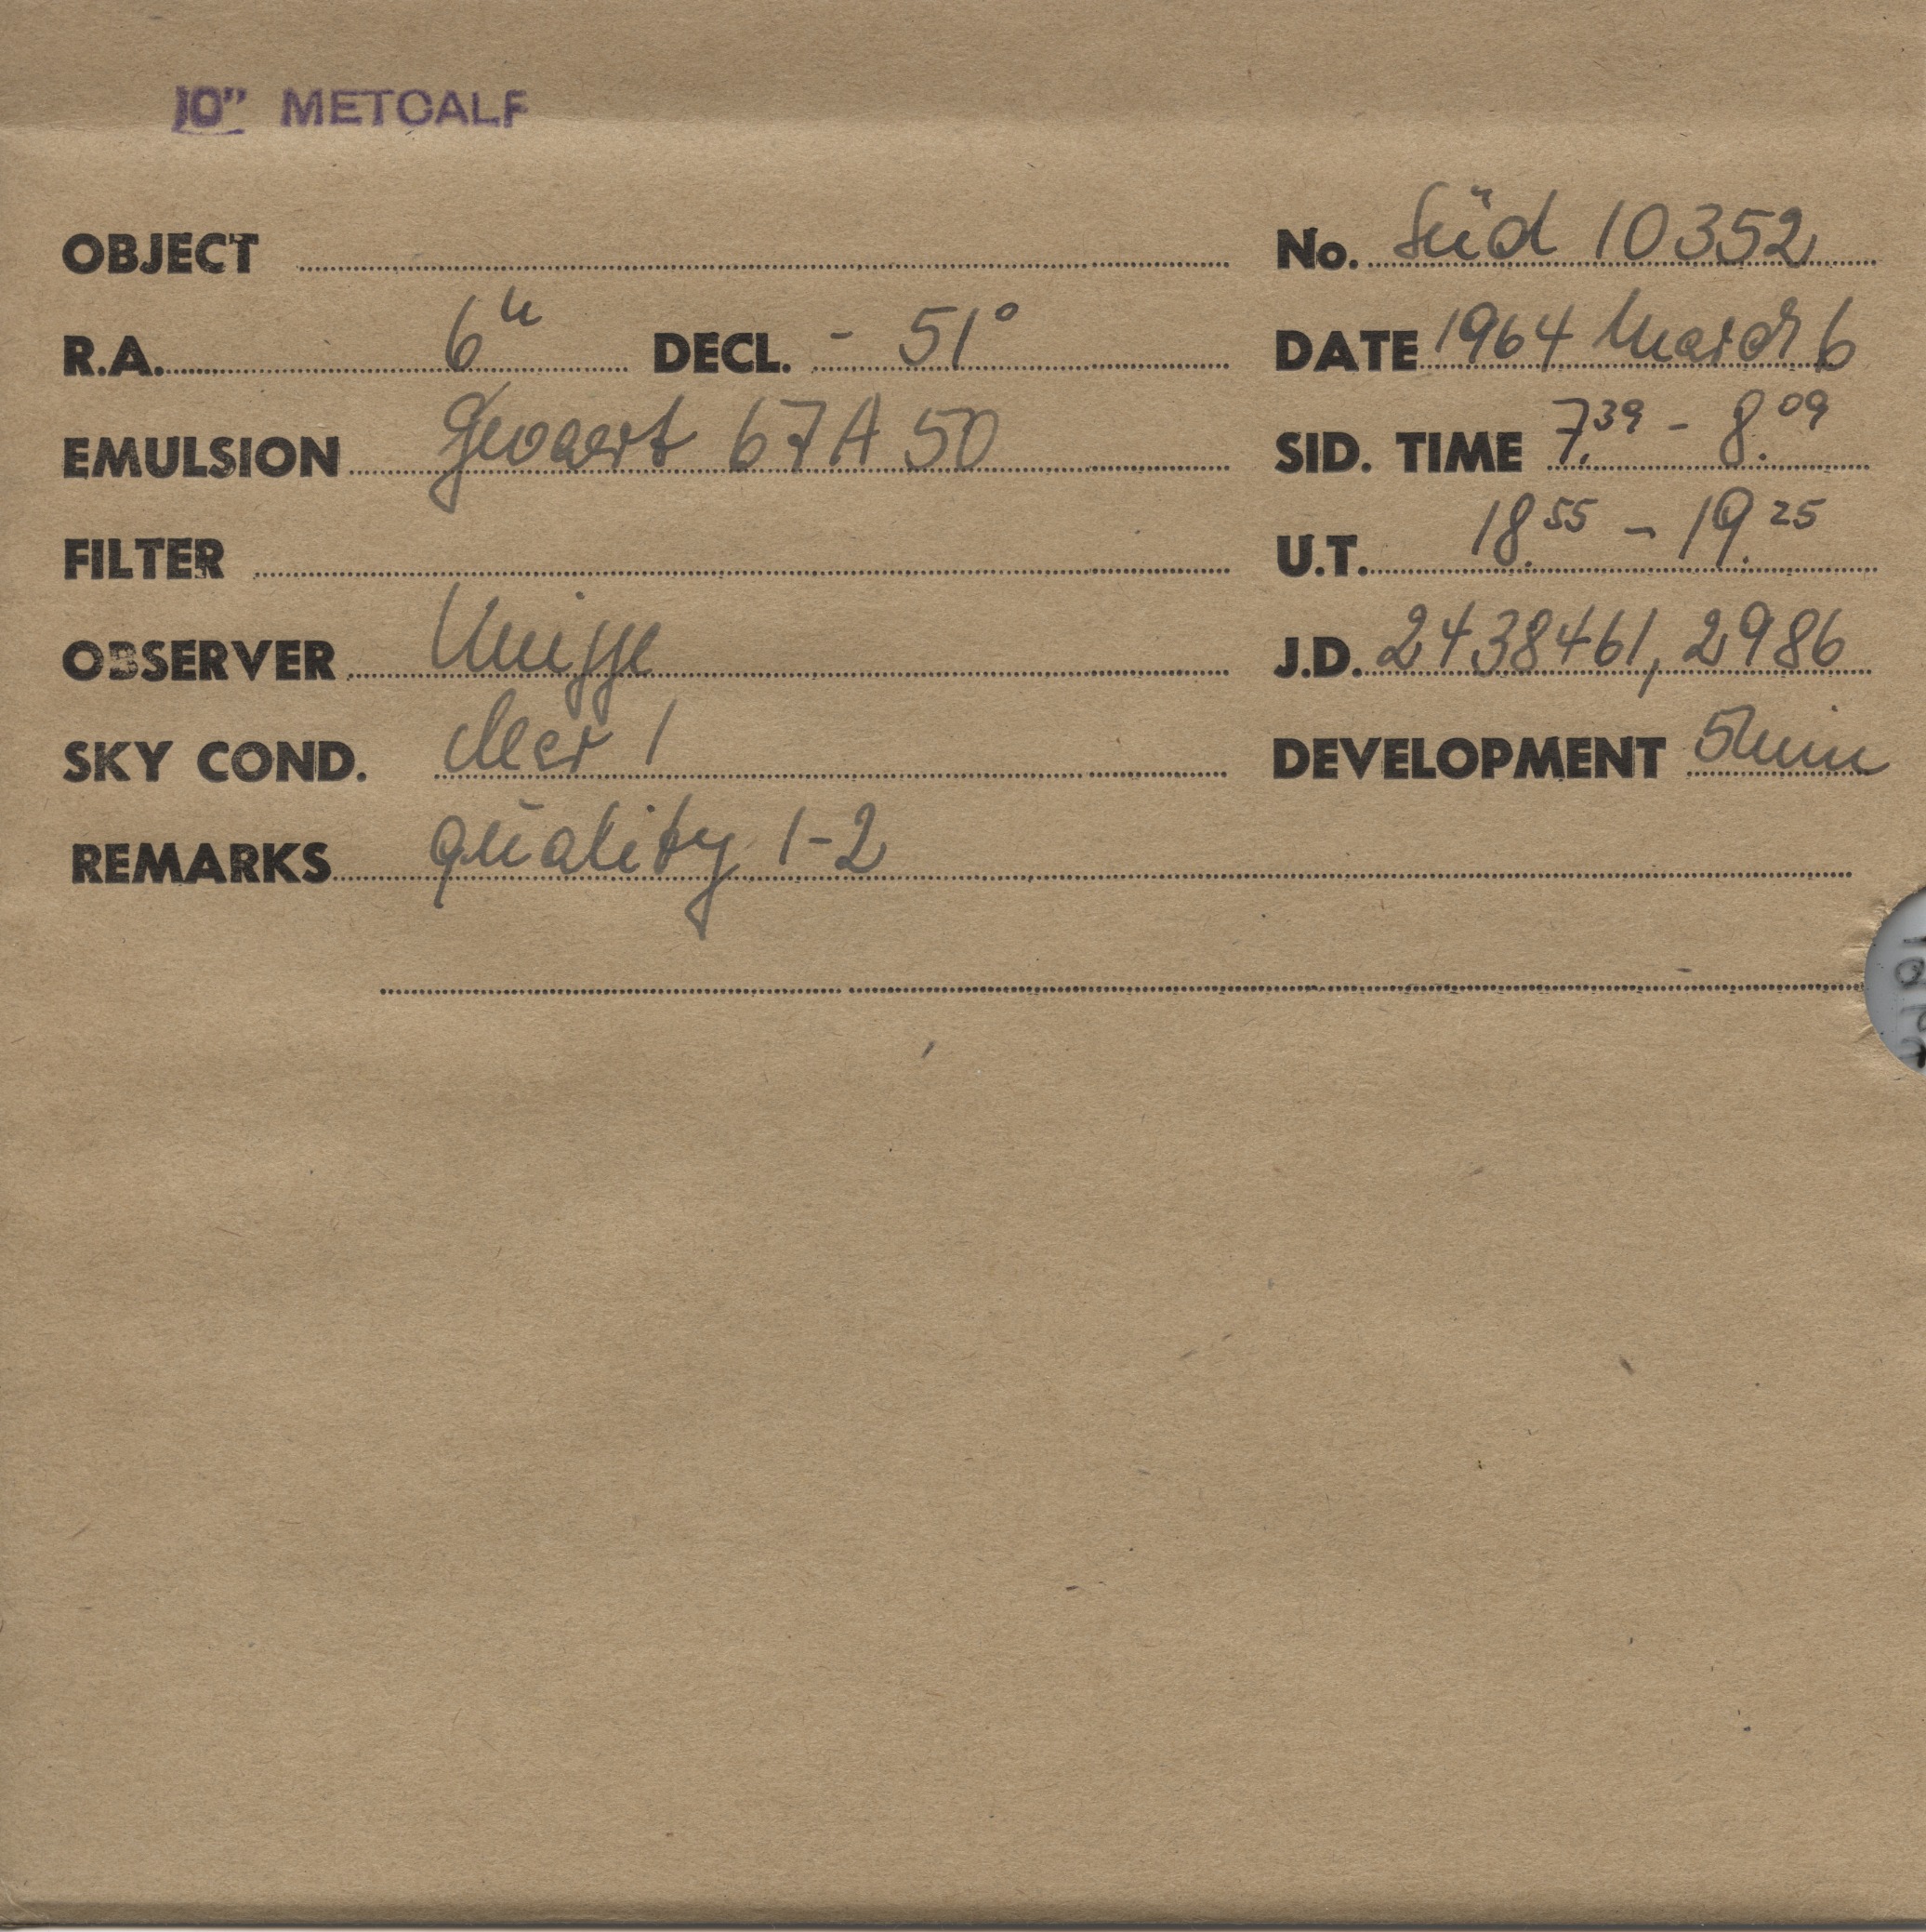 10" METCALF
OBJECT No. Süd 10352
R.A. 6h DECL. - 51° DATE 1964 March 6
EMULSION Gevaert 67A50 SID. TIME 7.39 - 8.09
FILTER U.T. 18.55 - 19.25
OBSERVER J.D. 2438461,2986
SKY COND. clear 1 DEVELOPMENT 5min
REMARKS quality 1-2